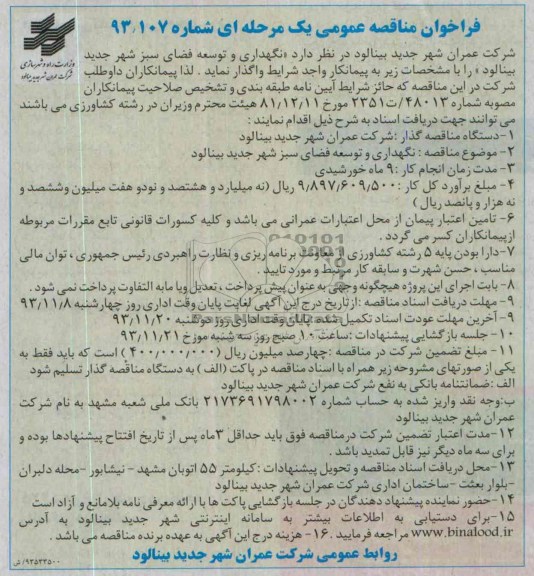 فراخوان مناقصه عمومی یک مرحله ای شماره ۹۳٫۱۰۷
وزارت راه و شهرسازی
شرکت عمران شهر جدید بینالود
شرکت عمران شهر جدید بینالود در نظر دارد «نگهداری و توسعه فضای سبز شهر جدید
بینالود » را با مشخصات زیر به پیمانکار واجد شرایط واگذار نماید . لذا پیمانکاران داوطلب
شرکت در این مناقصه که حائز شرایط آیین نامه طبقه بندی و تشخیص صلاحیت پیمانکاران
مصوبه شماره ۴۸۰۱۳/ت۲۳۵۱ مورخ ۸۱/۱۲/۱۱ هیئت محترم وزیران در رشته کشاورزی می باشند
می توانند جهت دریافت اسناد به شرح ذیل اقدام نمایند :
۱-دستگاه مناقصه گذار :شرکت عمران شهر جدید بینالود
۲- موضوع مناقصه : نگهداری و توسعه فضای سبز شهر جدید بینالود
۳- مدت زمان انجام کار :۹ ماه خورشیدی
۴- مبلغ برآورد کل کار :۹٫۸۹۷٫۶۰۹٫۵۰۰ ریال (نه میلیارد و هشتصد و نودو هفت میلیون وششصد و
نه هزار و پانصد ریال )
۶- تامین اعتبار پیمان از محل اعتبارات عمرانی می باشد و کلیه کسورات قانونی تابع مقررات مربوطه
ازپیمانکاران کسر می گردد .
۷-دارا بودن پایه ۵ رشته کشاورزی از معاونت برنامه ریزی و نظارت راهبردی رئیس جمهوری ، توان مالی
مناسب ، حسن شهرت و سابقه کار مرتبط و مورد تایید .
۸- بابت اجرای این پروژه هیچگونه وجهی به عنوان پیش پرداخت ، تعدیل ویا مابه التفاوت پرداخت نمی شود .
۹- مهلت دریافت اسناد مناقصه :ازتاریخ درج این آگهی لغایت پایان وقت اداری روز چهارشنبه ۹۳٫۱۱٫۸
۹- آخرین مهلت عودت اسناد تکمیل شده: پایان وقت اداری روز دوشنبه ۹۳٫۱۱٫۲۰
۱۰- جلسه بازگشایی پیشنهادات :ساعت ۱۰ صبح روز سه شنبه مورخ ۹۳٫۱۱٫۲۱
۱۱- مبلغ تضمین شرکت در مناقصه :چهارصد میلیون ریال (۴۰۰٫۰۰۰٫۰۰۰ ) است که باید فقط به
یکی از صورتهای مشروحه زیر همراه با اسناد مناقصه در پاکت (الف ) به دستگاه مناقصه گذار تسلیم شود
الف : ضمانتنامه بانکی به نفع شرکت عمران شهر جدید بینالود
ب:وجه نقد واریز شده به حساب شماره ۲۱۷۳۶۹۱۷۹۸۰۰۲ بانک ملی شعبه مشهد به نام شرکت
عمران شهر جدید بینالود
۱۲-مدت اعتبار تضمین شرکت درمناقصه فوق باید حداقل ۳ماه پس از تاریخ افتتاح پیشنهادها بوده و
برای سه ماه دیگر نیز قابل تمدید باشد .
۱۳-محل دریافت اسناد مناقصه و تحویل پیشنهادات :کیلومتر ۵۵ اتوبان مشهد - نیشابور -محله دلبران
-بلوار بعثت -ساختمان اداری شرکت عمران شهر جدید بینالود
۱۴-حضور نماینده پیشنهاد دهندگان در جلسه بازگشایی پاکت ها با ارائه معرفی نامه بلامانع و آزاد است
۱۵-برای دستیابی به اطلاعات بیشتر به سامانه اینترنتی شهر جدید بینالود به آدرس
www.binalood.ir مراجعه فرمایید .۱۶- هزینه درج این آگهی به عهده برنده مناقصه می باشد .
روابط عمومی شرکت عمران شهر جدید بینالود
۹۳۵۳۳۵۰۰/ش